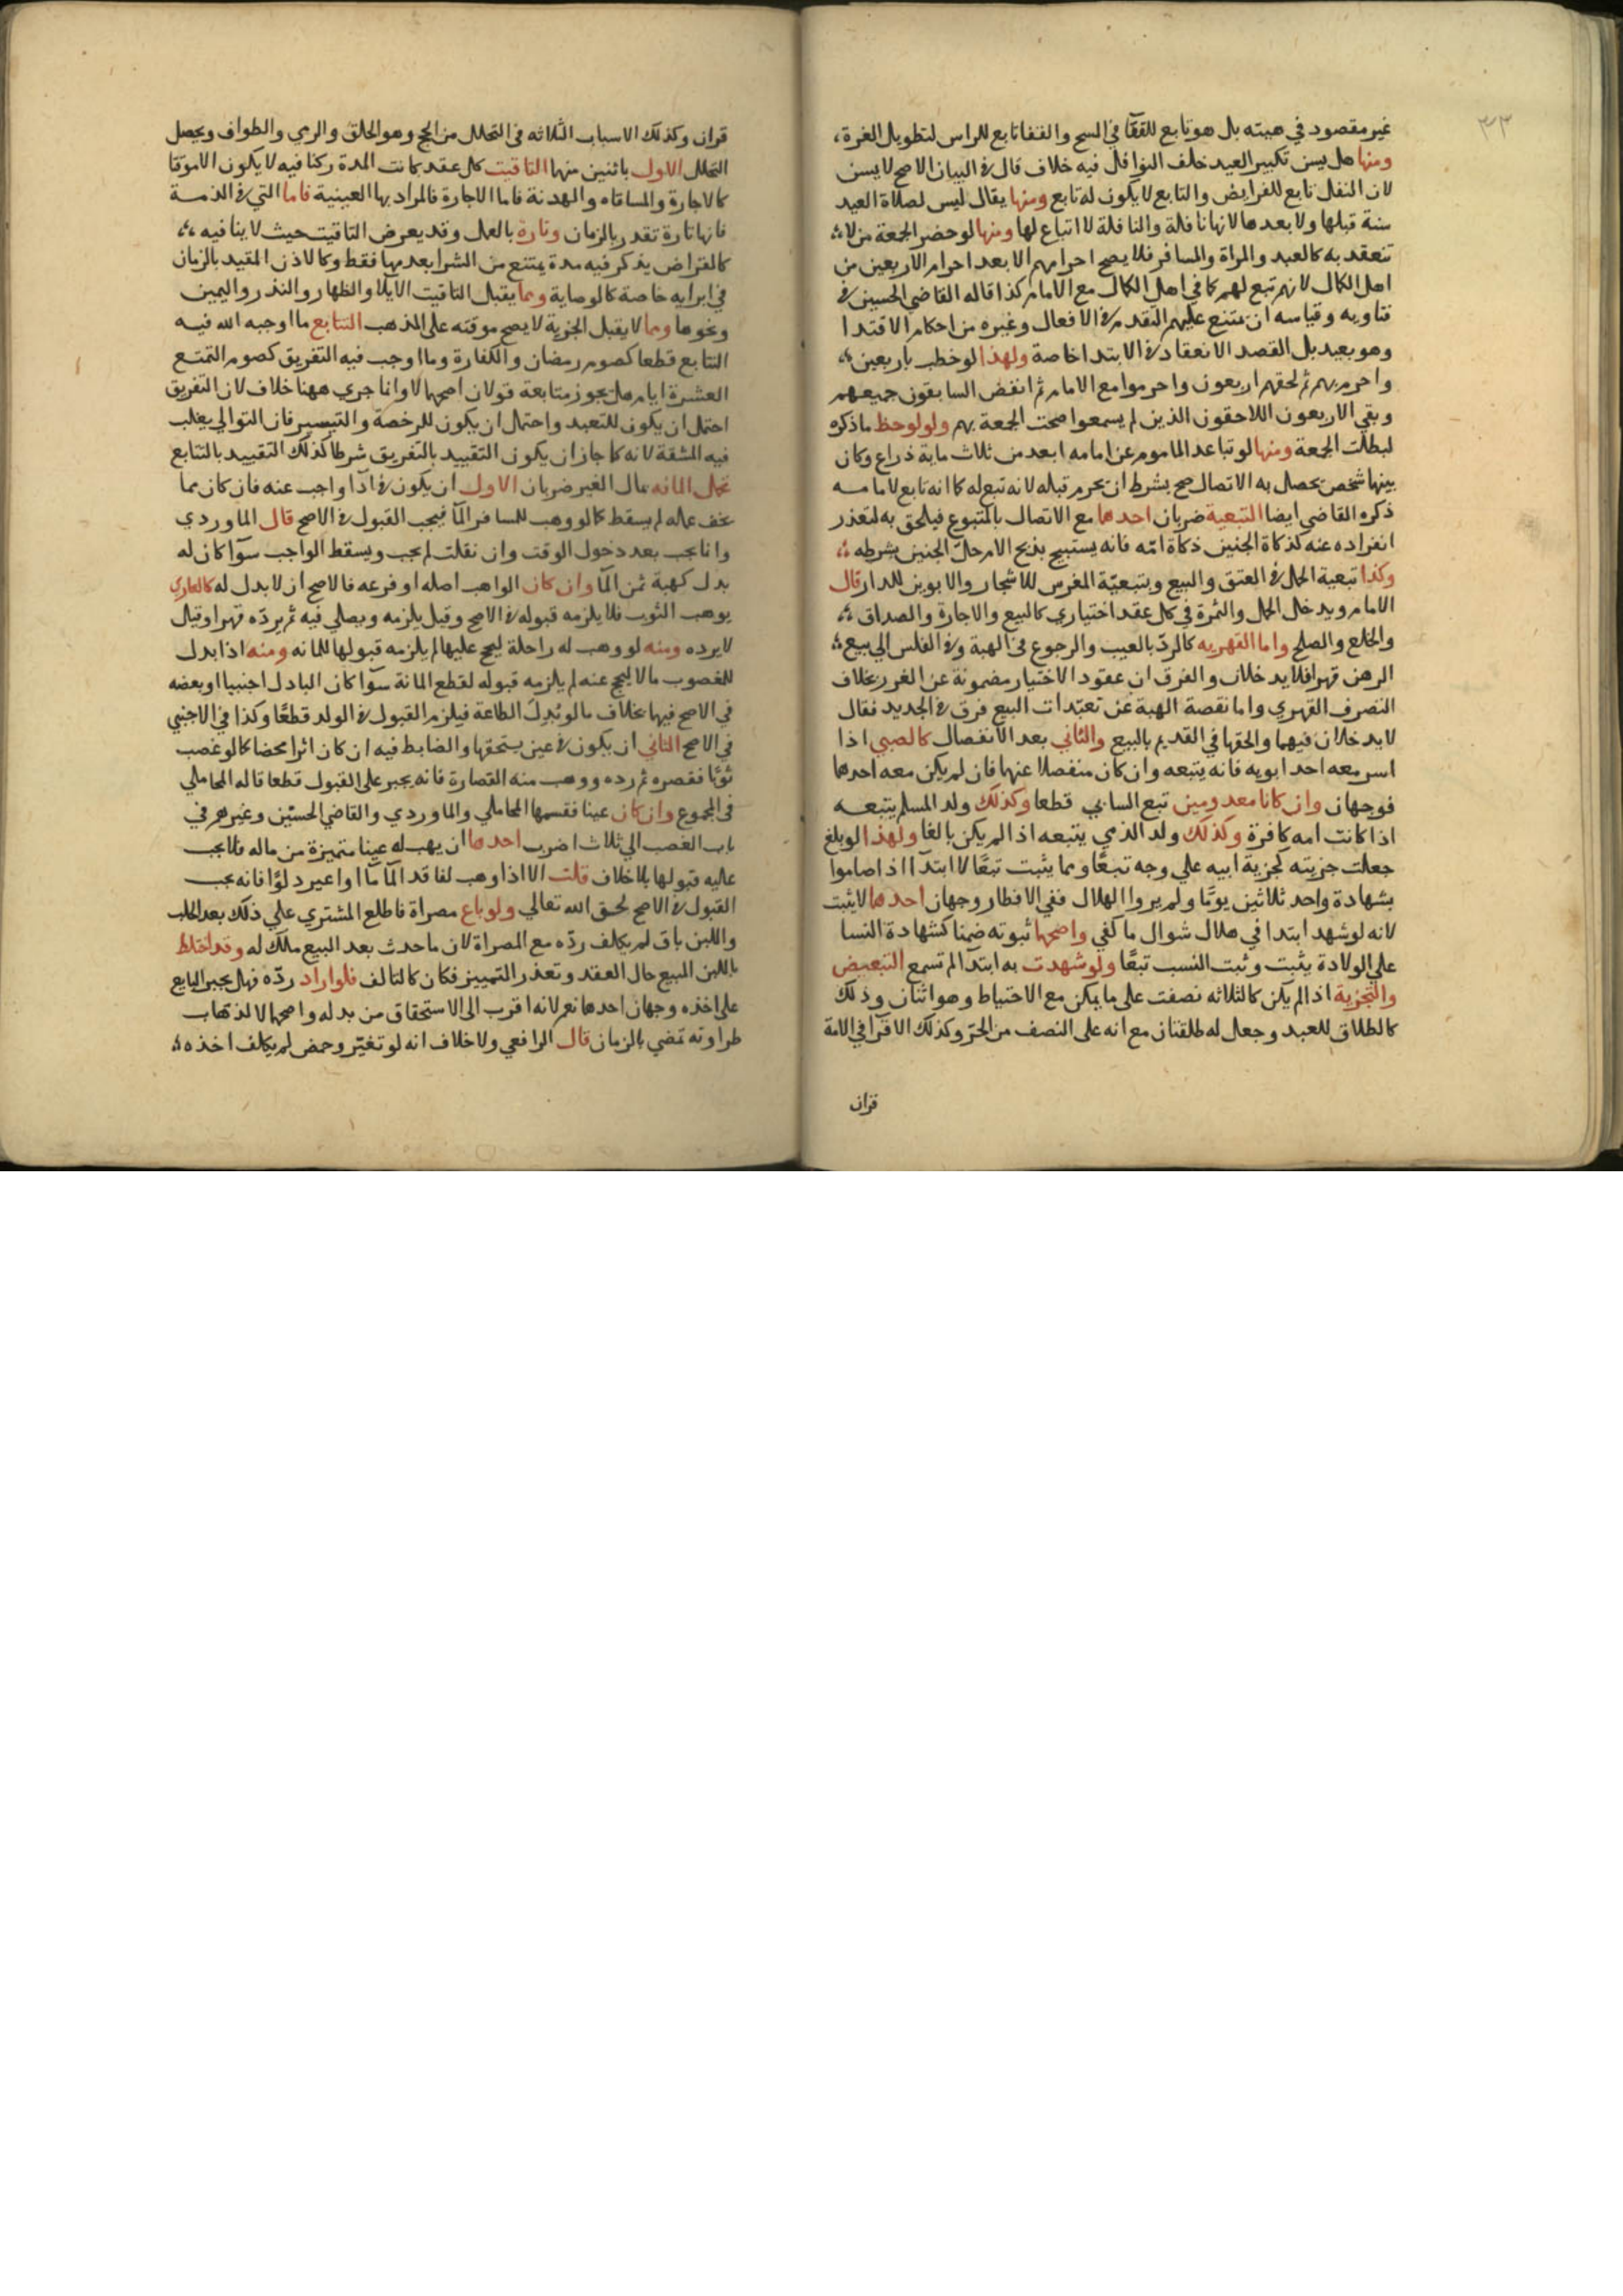 ٣٣
غير مقصود في هبته بل هو تابع للقفا في المسح والقفا تابع للراس لتطويل الغرة،
ومنها هل يسن تكبير العيد خلف النوافل فيه خلاف قال في البيان الاصح لا يسن
لان النفل تابع للفرايض والتابع لا يكون له تابع ومنها يقال ليس لصلاة العيد
سنة قبلها ولا بعدها لانها نافلة والنافلة لا اتباع لها ومنها لو حضر الجمعة من لا
تنعقد به كالعبد والمراة والمسافر فلا يصح احرامهم الا بعد احرام الاربعين من
اهل الكمال لانهم تبع لهم كما في اهل الكمال مع الامام كذا قاله القاضي الحسين في
فتاويه وقياسه ان يمتنع عليهم التقدم في الافعال وغيره من احكام الاقتدا
وهو بعيد بل القصد الانعقاد في الابتدا خاصة ولهذا لو خطب باربعين
واحرم بهم ثم لحقهم اربعون واحرموا مع الامام ثم انفض السابقون جميعهم
وبقي الاربعون اللاحقون الذين لم يسمعوا صحت الجمعة بهم ولو لوحظ ما ذكره
لبطلت الجمعة ومنها لو تباعد الماموم عن امامه ابعد من ثلاث ماية ذراع وكان
بينها شخص يحصل به الاتصال صح بشرط ان يحرم قبله لانه تبع له كما انه تابع لامامه
ذكره القاضي ايضا التبعية ضربان احدها مع الاتصال بالمتبوع فيلحق به لتعذر
انفراده عنه كذكاة الجنين ذكاة امّه فانه يستبيح بذبح الام حلّ الجنين بشرطه
وكذا تبعية الحمل في العتق والبيع وبتبعيّة المغرس للاشجار والابوين للدار قال
الامام ويدخل الحمل والثمرة في كل عقد اختياري كالبيع والاجارة والصداق
والخلع والصلح واما القهريه كالردّ بالعيب والرجوع في الهبة وفي الفلس الي بيع
الرهن قهرا فلا يدخلان والفرق ان عقود الاختيار مضمونة عن الغرر بخلاف
التصرف القهري واما نقصة الهبة عن تعبّدات البيع فرق في الجديد فقال
لا يدخلان فيهما والحقها في القديم بالبيع والثاني بعد الانفصال كالصبي اذا
اسر معه احد ابويه فانه يتبعه وان كان منفصلا عنها فان لم يكن معه احدها
فوجهان وان كانا معدومين تبع السابي قطعا وكذلك ولد المسلم يتبعه
اذا كانت امه كافرة وكذلك ولد الذمي يتبعه اذا لم يكن بالغا ولهذا لو بلغ
جعلت جزيته كجزية ابيه علي وجه تبعًا ومما يثبت تبعًا لا ابتدآ اذا صاموا
بشهادة واحد ثلاثين يومًا ولم يروا الهلال ففي الافطار وجهان احدها لا يثبت
لانه لو شهد ابتدا في هلال شوال ما كفي واصحها ثبوته ضمنا كشهادة النسا
علي الولادة يثبت وثبت النسب تبعًا ولو شهدت به ابتدآ لم تسمع التبعيض
والتجزية اذا لم يكن كالثلاثه نصفت علي ما يمكن مع الاحتياط وهو اثنان وذلك
كالطلاق للعبد وجعل له طلقتان مع انه على النصف من الحرّ وكذلك الاقرآ في الامة
قران
قران وكذلك الاسباب الثلاثه في التحلل من الحج وهو الحلق والرمي والطواف ويحصل
التحلل الاول باثنين منها التاقيت كل عقد كانت المدة ركنا فيه لا يكون الا موقتا
كالاجارة والمساقاه والهدنة فاما الاجارة فالمراد بها العينية فاما التي في الذمة
فانها تارة تقدر بالزمان وتارة بالعمل وقد يعرض التاقيت حيث لا ينافيه
كالقراض يذكر فيه مدة يمتنع من الشرا بعدها فقط وكالاذن المقيد بالزمان
في ابرايه خاصة كالوصاية ومما يقبل التاقيت الايلا والظهار والنذر واليمين
ونحوها ومما لا يقبل الجزية لا يصح موقته على المذهب التتابع ما اوجبه الله فيه
التتابع قطعا كصوم رمضان والكفارة وما اوجب فيه التفريق كصوم التمتع
العشرة ايام هل يجوز متابعة قولان اصحها لا وانما جري ههنا خلاف لان التفريق
احتمل ان يكون للتعبد واحتمل ان يكون للرخصة والتيسير فان التوالي يغلب
فيه المشقة لانه كما جاز ان يكون التقييد بالتفريق شرطا كذلك التقييد بالتتابع
تحمل المانه مال الغير ضربان الاول ان يكون في اداء واجب عنه فان كان مما
يخف عمله لم يسقط كما لو وهب للمسافر المآ فيجب القبول في الاصح قال الماوردي
وانما يجب بعد دخول الوقت وان نقلت لم يجب ويسقط الواجب سوآ كان له
بدل كهبة ثمن المآ وان كان الواهب اصله او فرعه فالاصح ان لا بدل له كالعاري
يوهب الثوب فلا يلزمه قبوله في الاصح وقيل يلزمه ويصلي فيه ثم يردّه قهرا وقيل
لا يرده ومنه لو وهب له راحلة ليحج عليها لم يلزمه قبولها للمانه ومنه اذا بدل
للغصوب مالا ليحج عنه لم يلزمه قبوله لقطع المانة سوآ كان البادل اجنبيا او بعضه
في الاصح فيها بخلاف ما لو بُدِلَ الطاعة فيلزم القبول في الولد قطعًا وكذا في الاجنبي
في الاصح الثاني ان يكون في عين يستحقها والضابط فيه ان كان اثرا محضا كما لو غصب
ثوبًا فقصره ثم رده ووهب منه القصارة فانه يجبر على القبول قطعا قاله المحاملي
في المجموع وان كان عينا فقسمها المحاملي والماوردي والقاضي الحسين وغيرهم في
باب الغصب الي ثلاث اضرب احدها ان يهب له عينا متميزة من ماله فلا يجب
عليه قبولها بلا خلاف قلت الا اذا وهب لفاقد المآ مآ او اعير دلوًا فانه يجب
القبول في الاصح لحق الله تعالي ولو باع مصراة فاطلع المشتري علي ذلك بعد الحلب
واللبن باق لم يكلف ردّه مع المصراة لان ما حدث بعد البيع ملك له وقد اختلط
باللبن المبيع حال العقد وتعذر التمييز فكان كالتالف فلو اراد ردّه فهل يجبر البايع
على اخذه وجهان احدها نعم لانه اقرب الى الاستحقاق من بدله واصحها لا لذهاب
طراوته بمضي الزمان قال الرافعي ولا خلاف انه لو تغيّر وحمض لم يكلف اخذه